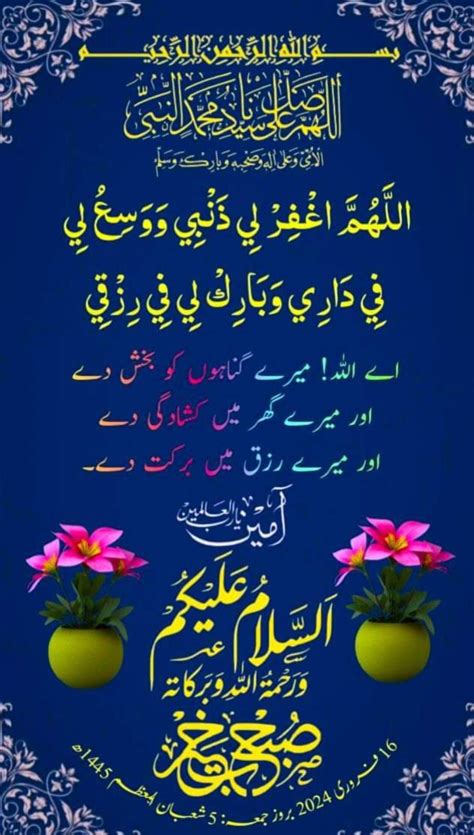 بسم الله الرحمن الرحيم
اللهم صل على سيدنا محمد النبي
الأمي وعلى آله وصحبه وبارك وسلم
اللَّهُمَّ اغْفِرْ لِي ذَنْبِي وَوَسِّعْ لِي
فِي دَارِي وَبَارِكْ لِي فِي رِزْقِي
اے اللہ! میرے گناہوں کو بخش دے
اور میرے گھر میں کشادگی دے
اور میرے رزق میں برکت دے۔
آمین یارب العالمین
السلام علیکم
ورحمة الله وبركاته
صبح بخیر
16 فروری 2024 بروز جمعہ: 5 شعبان المعظم 1445ھ